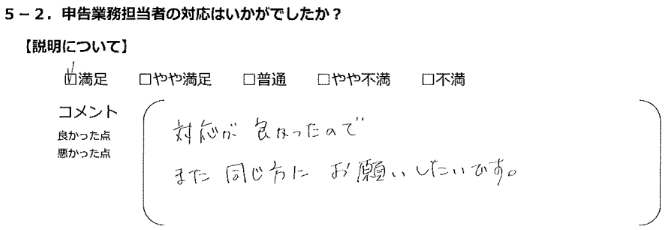 ５－２．申告業務担当者の対応はいかがでしたか？
【説明について】
☑満足 □やや満足 □普通 □やや不満 □不満
コメント
良かった点
悪かった点
対応が良かったので
また同じ方にお願いしたいです。